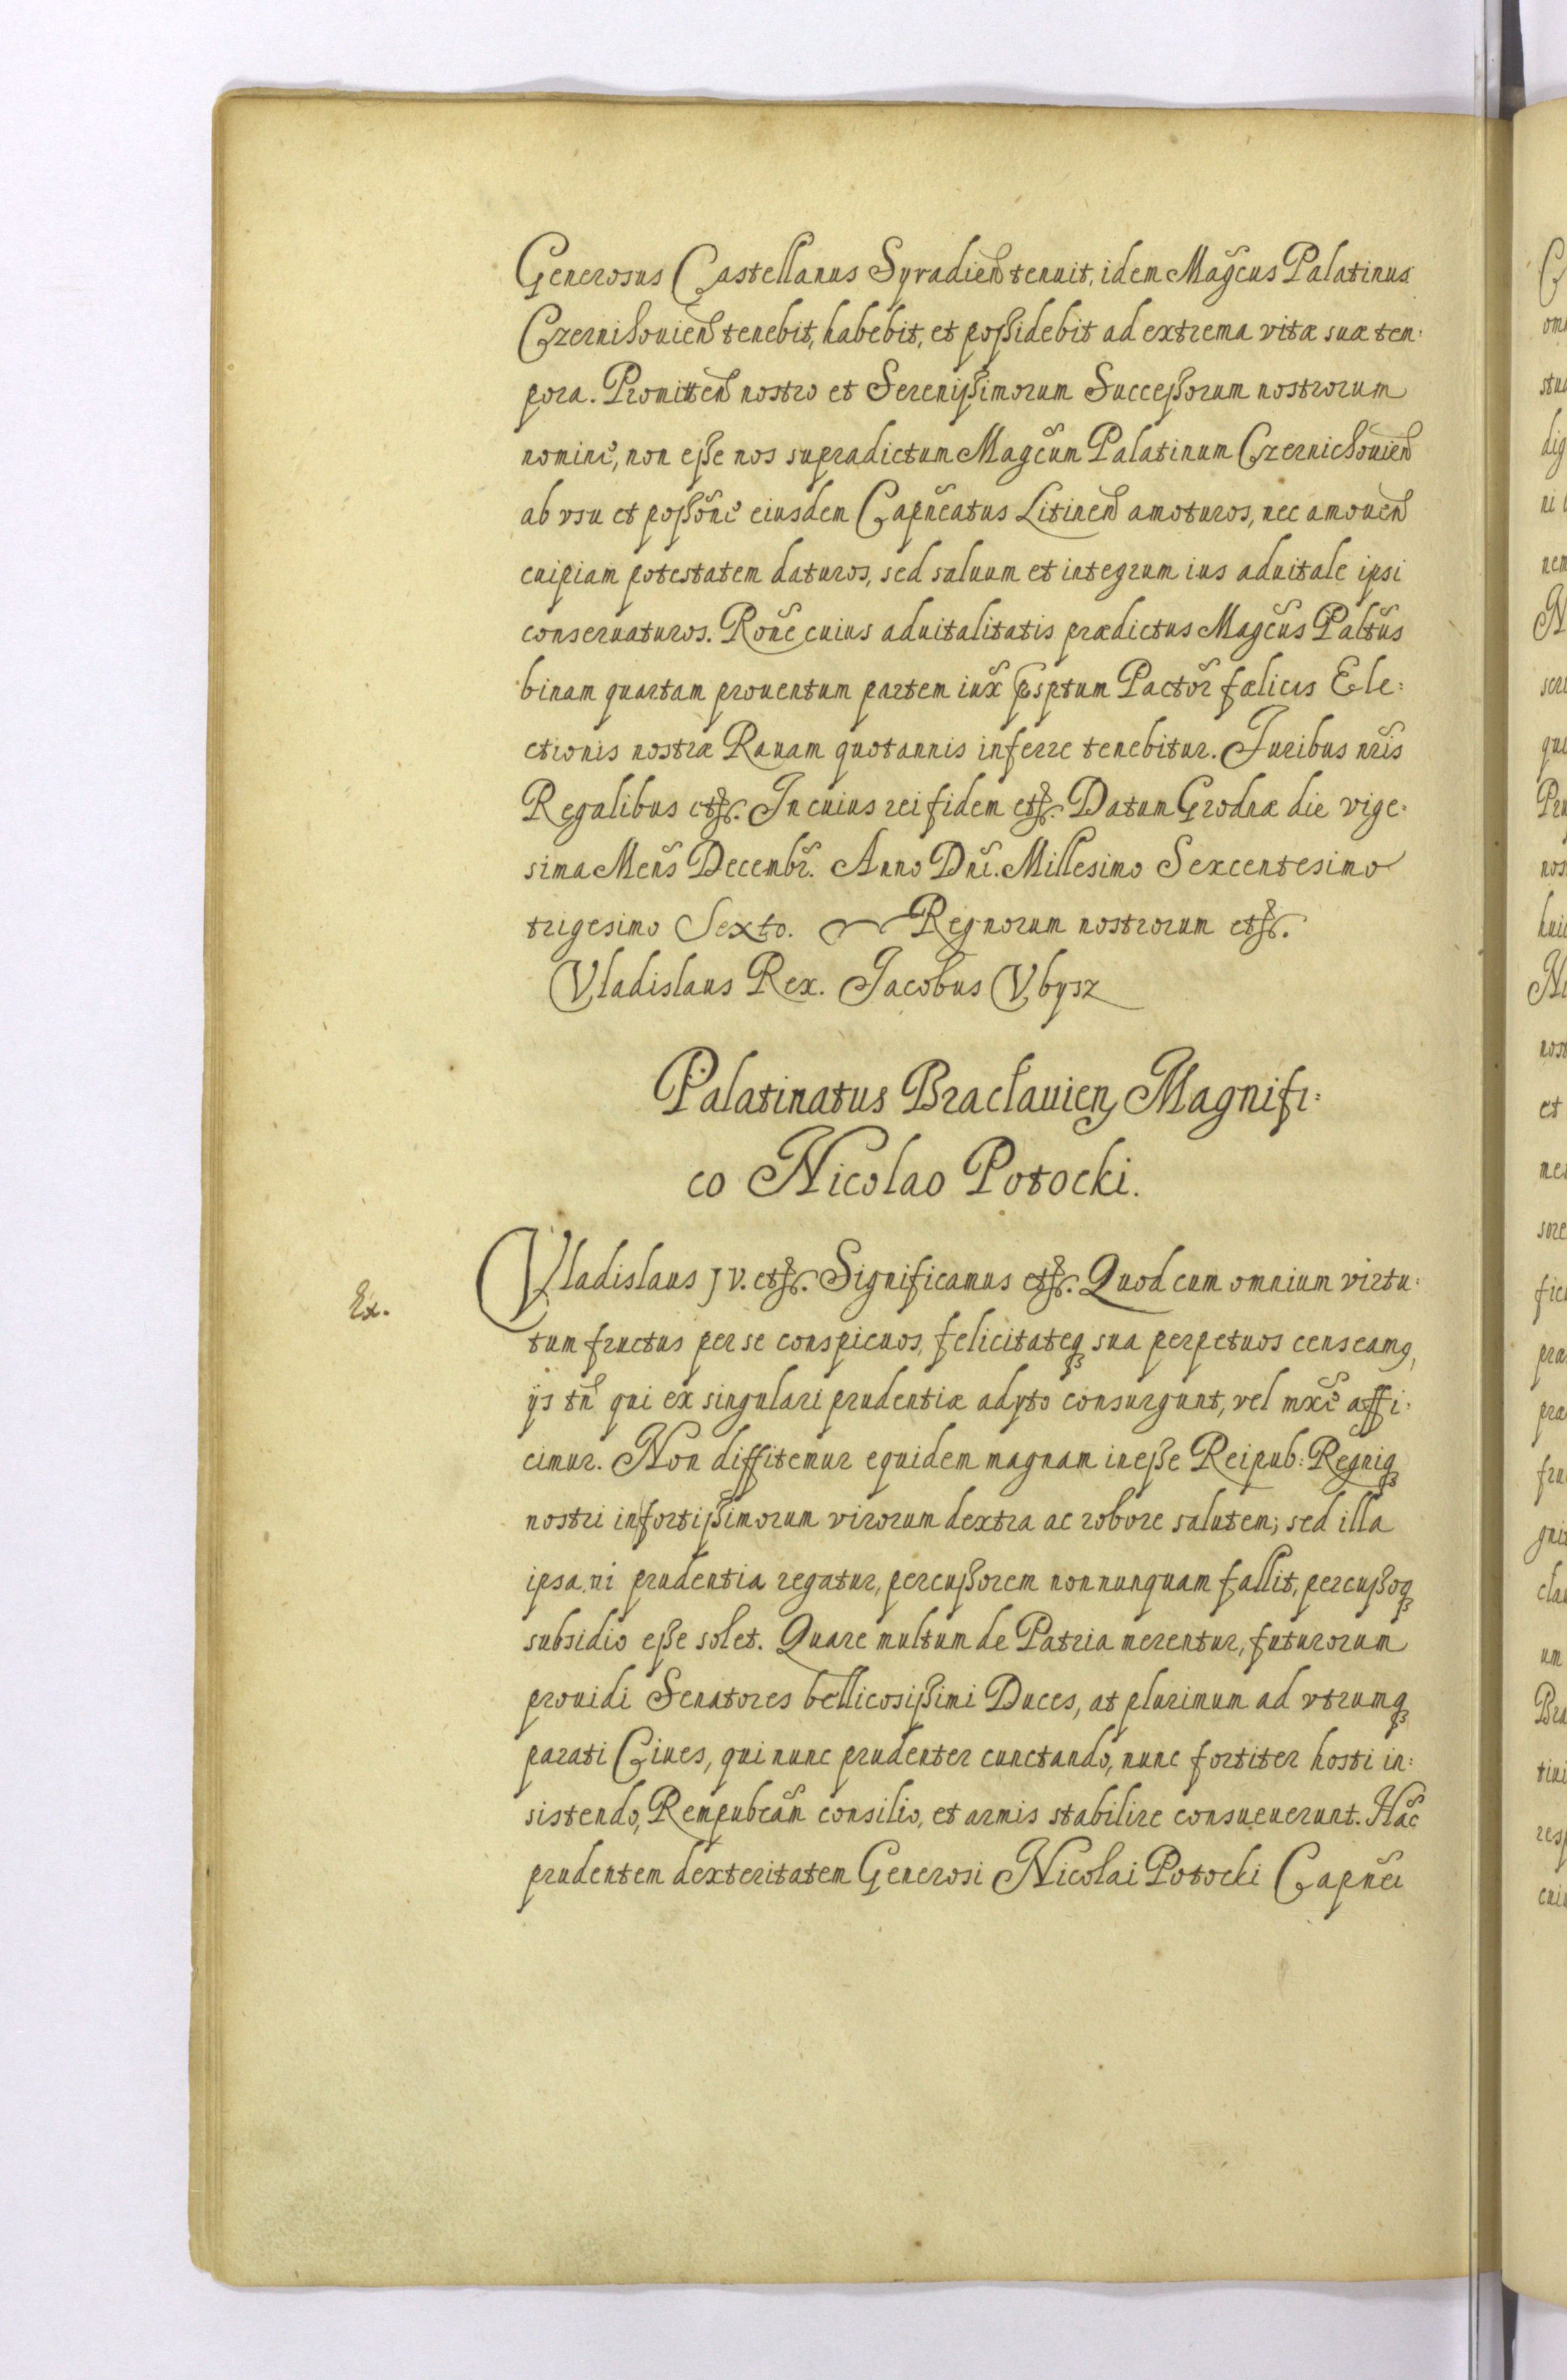 Generosus Castellanus Syradien tenuit, idem Magcus Palatinus
Czernihouien tenebit, habebit, et possidebit ad extrema vitæ suæ tem:
pora. Promitten nostro et Serenissimorum Successorum nostrorum
nomine, non esse nos supradictum Magcum Palatinum Czernichouien
ab vsu et possone eiusdem Capneatus Litinen amoturos, nec amouen
cuipiam potestatem daturos, sed saluum et integrum ius aduitale ipsi
conseruaturos. Rone cuius aduitalitatis prædictus Magcus Paltus
binam quartam prouentum partem iux psptum Pactor fælicis Ele:
ctionis nostræ Rauam quotannis inferre tenebitur. Juribus nris
Regalibus etc. In cuius rei fidem etc. Datum Grodnæ die vige:
sima Mens Decembr. Anno Dni. Millesimo Sexcentesimo
trigesimo Sexto. Regnorum nostrorum etc.
Vladislaus Rex. Jacobus Vbysz
Palatinatus Bracłauien Magnifi:
co Nicolao Potocki.
Ex.
Vladislaus IV. etc. Significamus etc. Quod cum omnium virtu:
tum fructus per se conspicuos, felicitateq sua perpetuos censeam9,
ijs tn qui ex singulari prudentiæ adyto consurgunt, vel mxe affi:
cimur. Non diffitemur equidem magnam inesse Reipub: Regniq
nostri in fortissimorum virorum dextra ac robore salutem; sed illa
ipsa ni prudentia regatur, percussorem nonnunquam fallit, percussoq
subsidio esse solet. Quare multum de Patria merentur, futurorum
prouidi Senatores bellicosissimi Duces, at plurimum ad vtrumq
parati Ciues, qui nunc prudenter cunctando, nunc fortiter hosti in:
sistendo, Rempubcam consilio, et armis stabilire consueuerunt. Hac
prudentem dexteritatem Generosi Nicolai Potocki Capnei